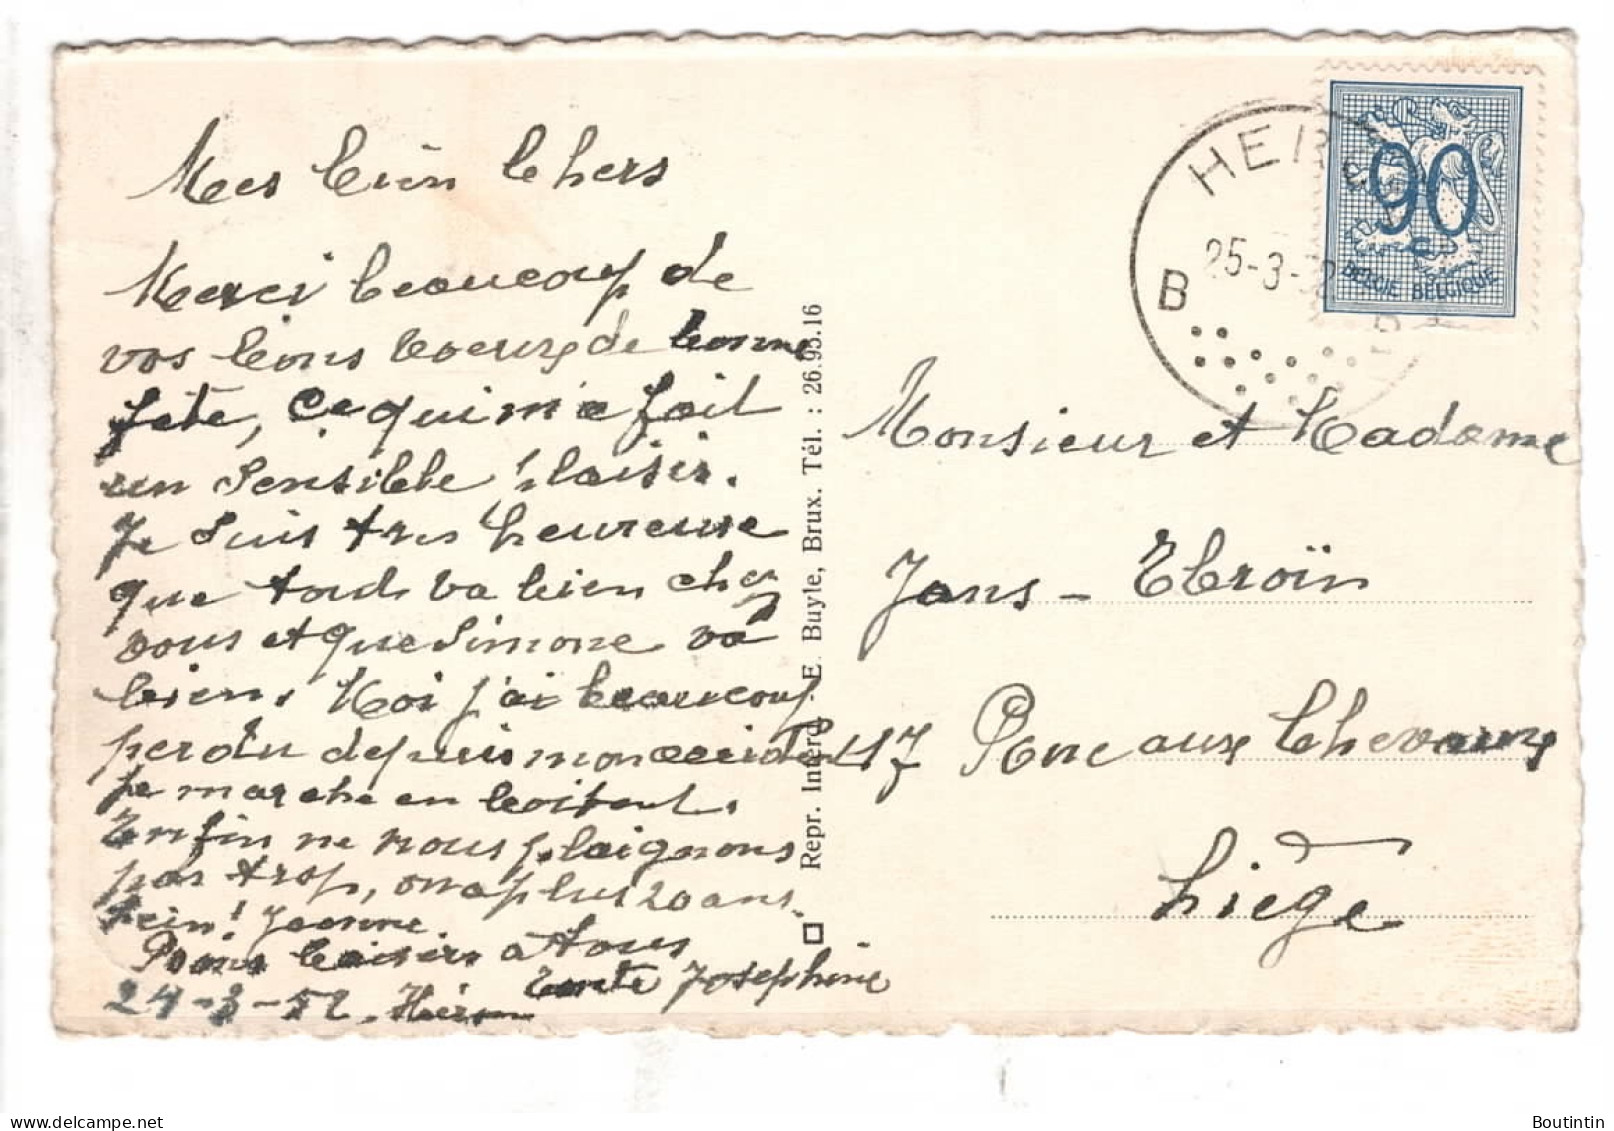 Mes bien chers
Merci beaucoup de
vos bons voeux de bonne
fete, ce qui m'a fait
un sensible plaisir.
Je suis très heureuse
que tout va bien chez
vous et que Simone va
bien. Moi j'ai beaucoup
perdu depuis mon accident
je marche en boitant.
Enfin ne nous plaignons
pas trop, on a plus 20 ans
hein!
Bons baisers à tous
Tante Josephine
24-3-52.
Repr. Interd. - E. Buyle, Brux. Tél. : 26.95.16
HER
25-3-5
B
90
BELGIE BELGIQUE
Monsieur et Madame
Jans - Ebroïn
47 Rue aux Chevaux
Liège
Boutintin